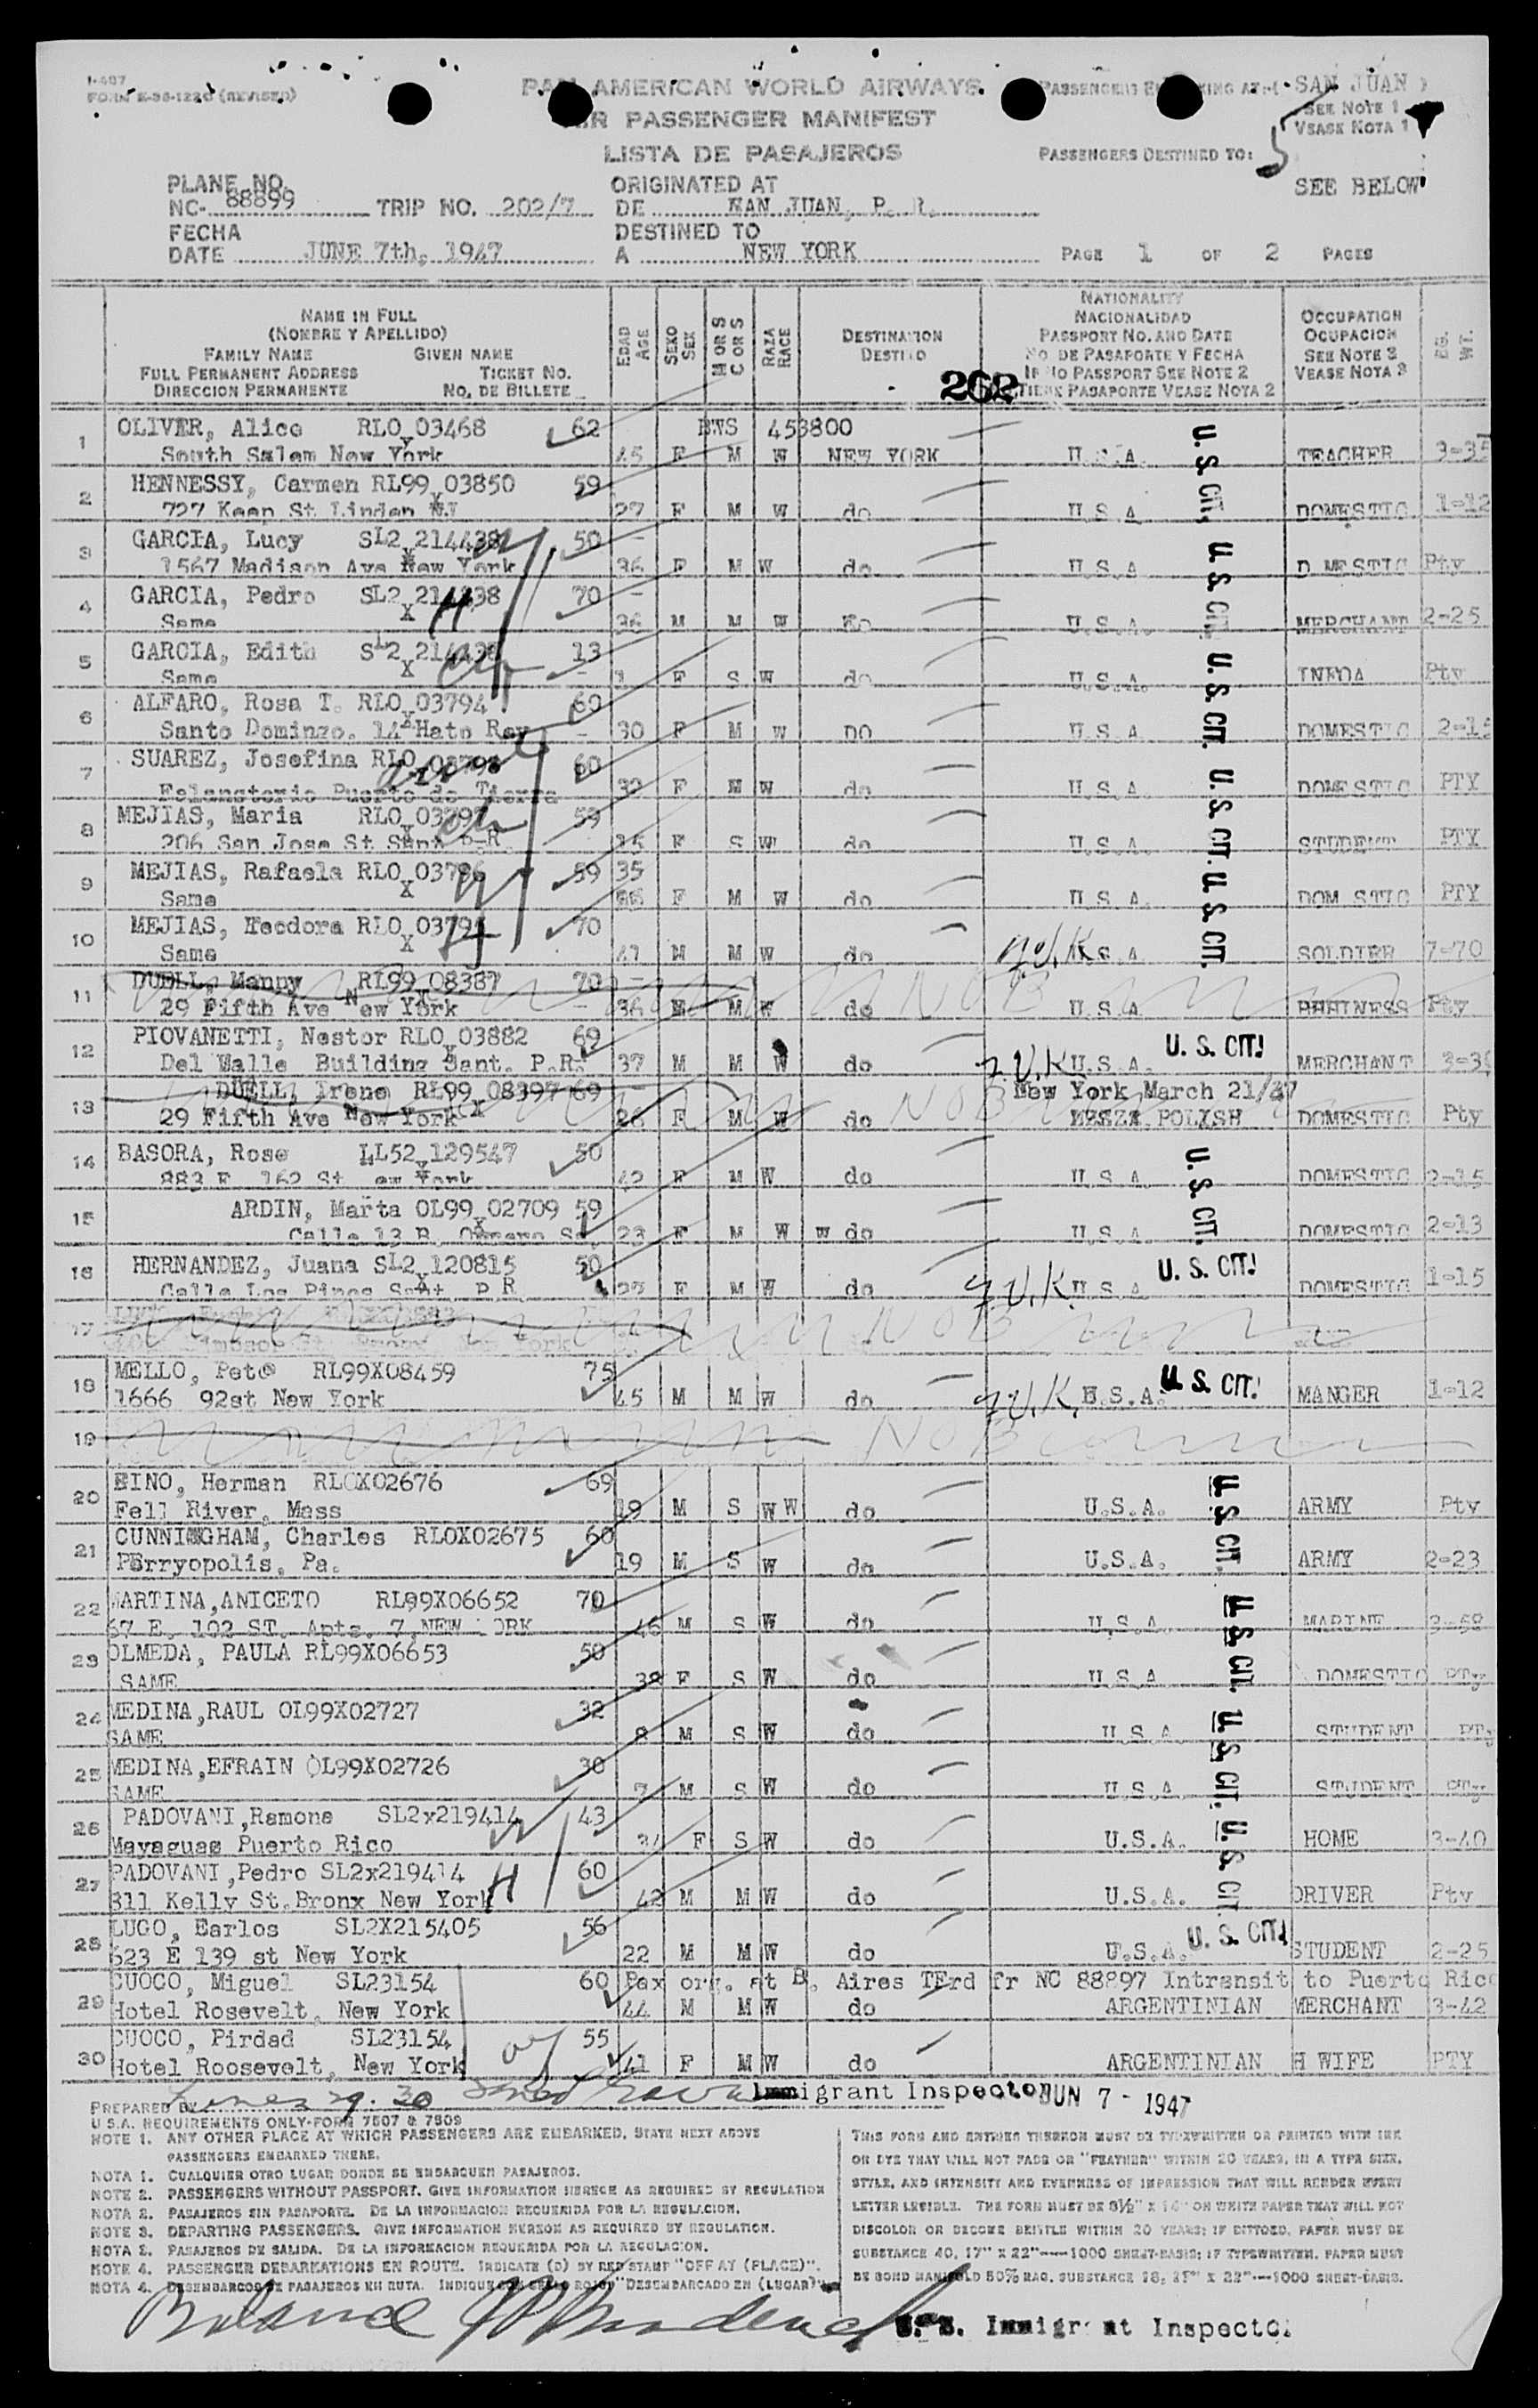 I-407
FORM E-96-1220 (REVISED)
PAN AMERICAN WORLD AIRWAYS
AIR PASSENGER MANIFEST
LISTA DE PASAJEROS
PASSENGERS EMBARKING AT: SAN JUAN
SEE NOTE 1
VEASE NOTA 1
PASSENGERS DESTINED TO:
5
SEE BELOW
PLANE NO.
NC- 88899 TRIP NO. 202/7
ORIGINATED AT
DE SAN JUAN, P. R.
FECHA
DATE JUNE 7th, 1947
DESTINED TO
A NEW YORK
PAGE 1 OF 2 PAGES
NAME IN FULL
(NOMBRE Y APELLIDO)
FAMILY NAME GIVEN NAME
FULL PERMANENT ADDRESS TICKET NO.
DIRECCION PERMANENTE NO. DE BILLETE
EDAD AGE
SEXO SEX
M OR S C OR S
RAZA RACE
DESTINATION
DESTINO
NATIONALITY
NACIONALIDAD
PASSPORT NO. AND DATE
NO. DE PASAPORTE Y FECHA
IF NO PASSPORT SEE NOTE 2
TIENE PASAPORTE VEASE NOTA 2
OCCUPATION
OCUPACION
SEE NOTE 3
VEASE NOTA 3
WT.
262
1 OLIVER, Alice RLO 03468 62 BWS 453800
South Salem New York 45 F M W NEW YORK U.S.A. TEACHER 3-35
2 HENNESSY, Carmen RL99 03850 59
727 Keep St Linden NJ 27 F M W do U.S.A. DOMESTIC 1-12
3 GARCIA, Lucy SL2 214438 50
1567 Madison Ave New York 36 F M W do U.S.A. D MESTIC Pty
4 GARCIA, Pedro SL2 214438 70
Same X 36 M M W do U.S.A. MERCHANT 2-25
5 GARCIA, Edith SL2 214438 13
Same X 1 F S W do U.S.A. Pty
6 ALFARO, Rosa T. RLO 03794 60
Santo Domingo. 14 Hato Rey 30 F M W DO U.S.A. DOMESTIC 2-15
7 SUAREZ, Josefina RLO 03798 60
Puerto de Tierra 32 F M W do U.S.A. DOMESTIC PTY
8 MEJIAS, Maria RLO 03797 59
206 San Jose St Sant P.R. 15 F S W do U.S.A. STUDENT PTY
9 MEJIAS, Rafaela RLO 03796 59 35
Same X F M W do U.S.A. DOM STIC PTY
10 MEJIAS, Teodora RLO 03795 70
Same X 41 M M W do U.S.A. SOLDIER 7-70
11 DUELL, Manny RL99 08387 70
29 Fifth Ave New York 36 M W do NOB U.S.A. BUSINESS Pty
12 PIOVANETTI, Nestor RLO 03882 69 U. S. CIT.
Del Valle Building Sant. P.R. 37 M M W do U.S.A. MERCHANT 3-39
13 DUELL, Irene RL99 08397 69 New York March 21/37
29 Fifth Ave New York X 26 F M W do NOB POLISH DOMESTIC Pty
14 BASORA, Rose LL52 129547 50
883 E. 162 St. ew York 42 F M W do U.S.A. DOMESTIC 2-15
15 ARDIN, Marta OL99 02709 59
Calle 13 B. Obrero Sa. 23 F M W W do U.S.A. DOMESTIC 2-13
16 HERNANDEZ, Juana SL2 120815 50 U. S. CIT.
Calle Los Pinos Sant. P.R. 27 F M W do U.S.A. DOMESTIC 1-15
17 NOB
18 MELLO, Pete RL99X08459 75 U. S. CIT.
1666 92st New York 45 M M W do U.S.A. MANGER 1-12
19 NOB
20 EINO, Herman RLOX02676 69
Fell River, Mass 19 M S W W do U.S.A. ARMY Pty
21 CUNNINGHAM, Charles RLOX02675 60
Perryopolis, Pa. 19 M S W do U.S.A. ARMY 2-23
22 MARTINA,ANICETO RL99X06652 70
67 E. 102 ST. Apts. 7,NEW ORK 46 M S W do U.S.A. MARINE 3-58
23 OLMEDA, PAULA RL99X06653 50
SAME 38 F S W do U.S.A DOMESTIC PTy
24 MEDINA,RAUL OL99X02727 32
SAME 8 M S W do U.S.A STUDENT PTy
25 MEDINA,EFRAIN OL99X02726 30
SAME 7 M S W do U.S.A STUDENT PTy
26 PADOVANI,Ramona SL2x219414 43
Mayaguas Puerto Rico 34 F S W do U.S.A. HOME 3-40
27 PADOVANI,Pedro SL2x219414 60
811 Kelly St.Bronx New York 42 M M W do U.S.A. DRIVER Pty
28 LUGO, Earlos SL2X215405 56
623 E 139 st New York 22 M M W do U.S.A. U. S. CIT. STUDENT 2-25
29 CUOCO, Miguel SL23154 60 Pax org. at B. Aires TFrd fr NC 88897 Intransit to Puerto Rico
Hotel Rosevelt, New York 44 M M W do ARGENTINIAN MERCHANT 3-42
30 CUOCO, Pirdad SL23154 55
Hotel Roosevelt, New York 41 F M W do ARGENTINIAN H WIFE PTY
U. S. CIT. U. S. CIT. U. S. CIT. U. S. CIT. U. S. CIT.
U. S. CIT.
U. S. CIT. U. S. CIT. U. S. CIT. U. S. CIT.
PREPARED BY Lines 29. 30 Immigrant Inspector JUN 7 - 1947
U.S.A. REQUIREMENTS ONLY-FORM 7507 & 7509
NOTE 1. ANY OTHER PLACE AT WHICH PASSENGERS ARE EMBARKED, STATE NEXT ABOVE
PASSENGERS EMBARKED THERE.
NOTA 1. CUALQUIER OTRO LUGAR DONDE SE EMBARQUEN PASAJEROS.
NOTE 2. PASSENGERS WITHOUT PASSPORT. GIVE INFORMATION HEREON AS REQUIRED BY REGULATION
NOTA 2. PASAJEROS SIN PASAPORTE. DE LA INFORMACION REQUERIDA POR LA REGULACION.
NOTE 3. DEPARTING PASSENGERS. GIVE INFORMATION HEREON AS REQUIRED BY REGULATION.
NOTA 3. PASAJEROS DE SALIDA. DE LA INFORMACION REQUERIDA POR LA REGULACION.
NOTE 4. PASSENGER DEBARKATIONS EN ROUTE. INDICATE (D) BY RED STAMP "OFF AT (PLACE)".
NOTA 4. DESEMBARCOS DE PASAJEROS EN RUTA. INDIQUE CON SELLO ROJO "DESEMBARCADO EN (LUGAR)"
THIS FORM AND ENTRIES THEREON MUST BE TYPEWRITTEN OR PRINTED WITH INK
OR DYE THAT WILL NOT FADE OR "FEATHER" WITHIN 20 YEARS, IN A TYPE SIZE,
STYLE, AND INTENSITY AND EVENNESS OF IMPRESSION THAT WILL RENDER EVERY
LETTER LEGIBLE. THE FORM MUST BE 8½" X 14" ON WHITE PAPER THAT WILL NOT
DISCOLOR OR BECOME BRITTLE WITHIN 20 YEARS; IF DITTOED, PAPER MUST BE
SUBSTANCE 40, 17" X 22"---1000 SHEET-BASIS; IF TYPEWRITTEN, PAPER MUST
BE BOND MANIFOLD 50% RAG. SUBSTANCE 18, 17" X 22"---1000 SHEET-BASIS.
U. S. Immigrant Inspector